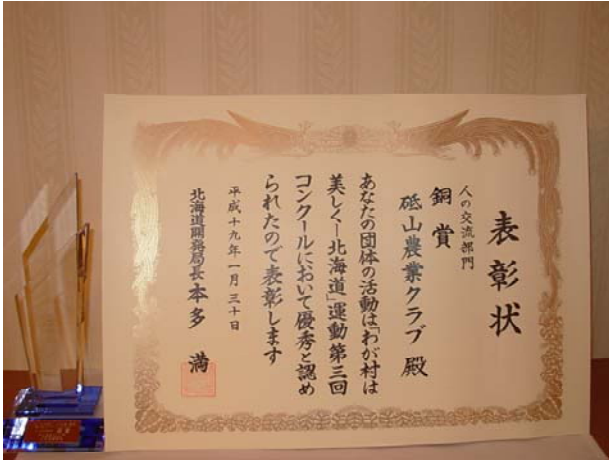 表彰状
人の交流部門
銅賞
砥山農業クラブ 殿
あなたの団体の活動は「わが村は
美しく－北海道」運動第三回
コンクールにおいて優秀と認め
られたので表彰します
平成十九年一月三十日
北海道開発局長 本多 満